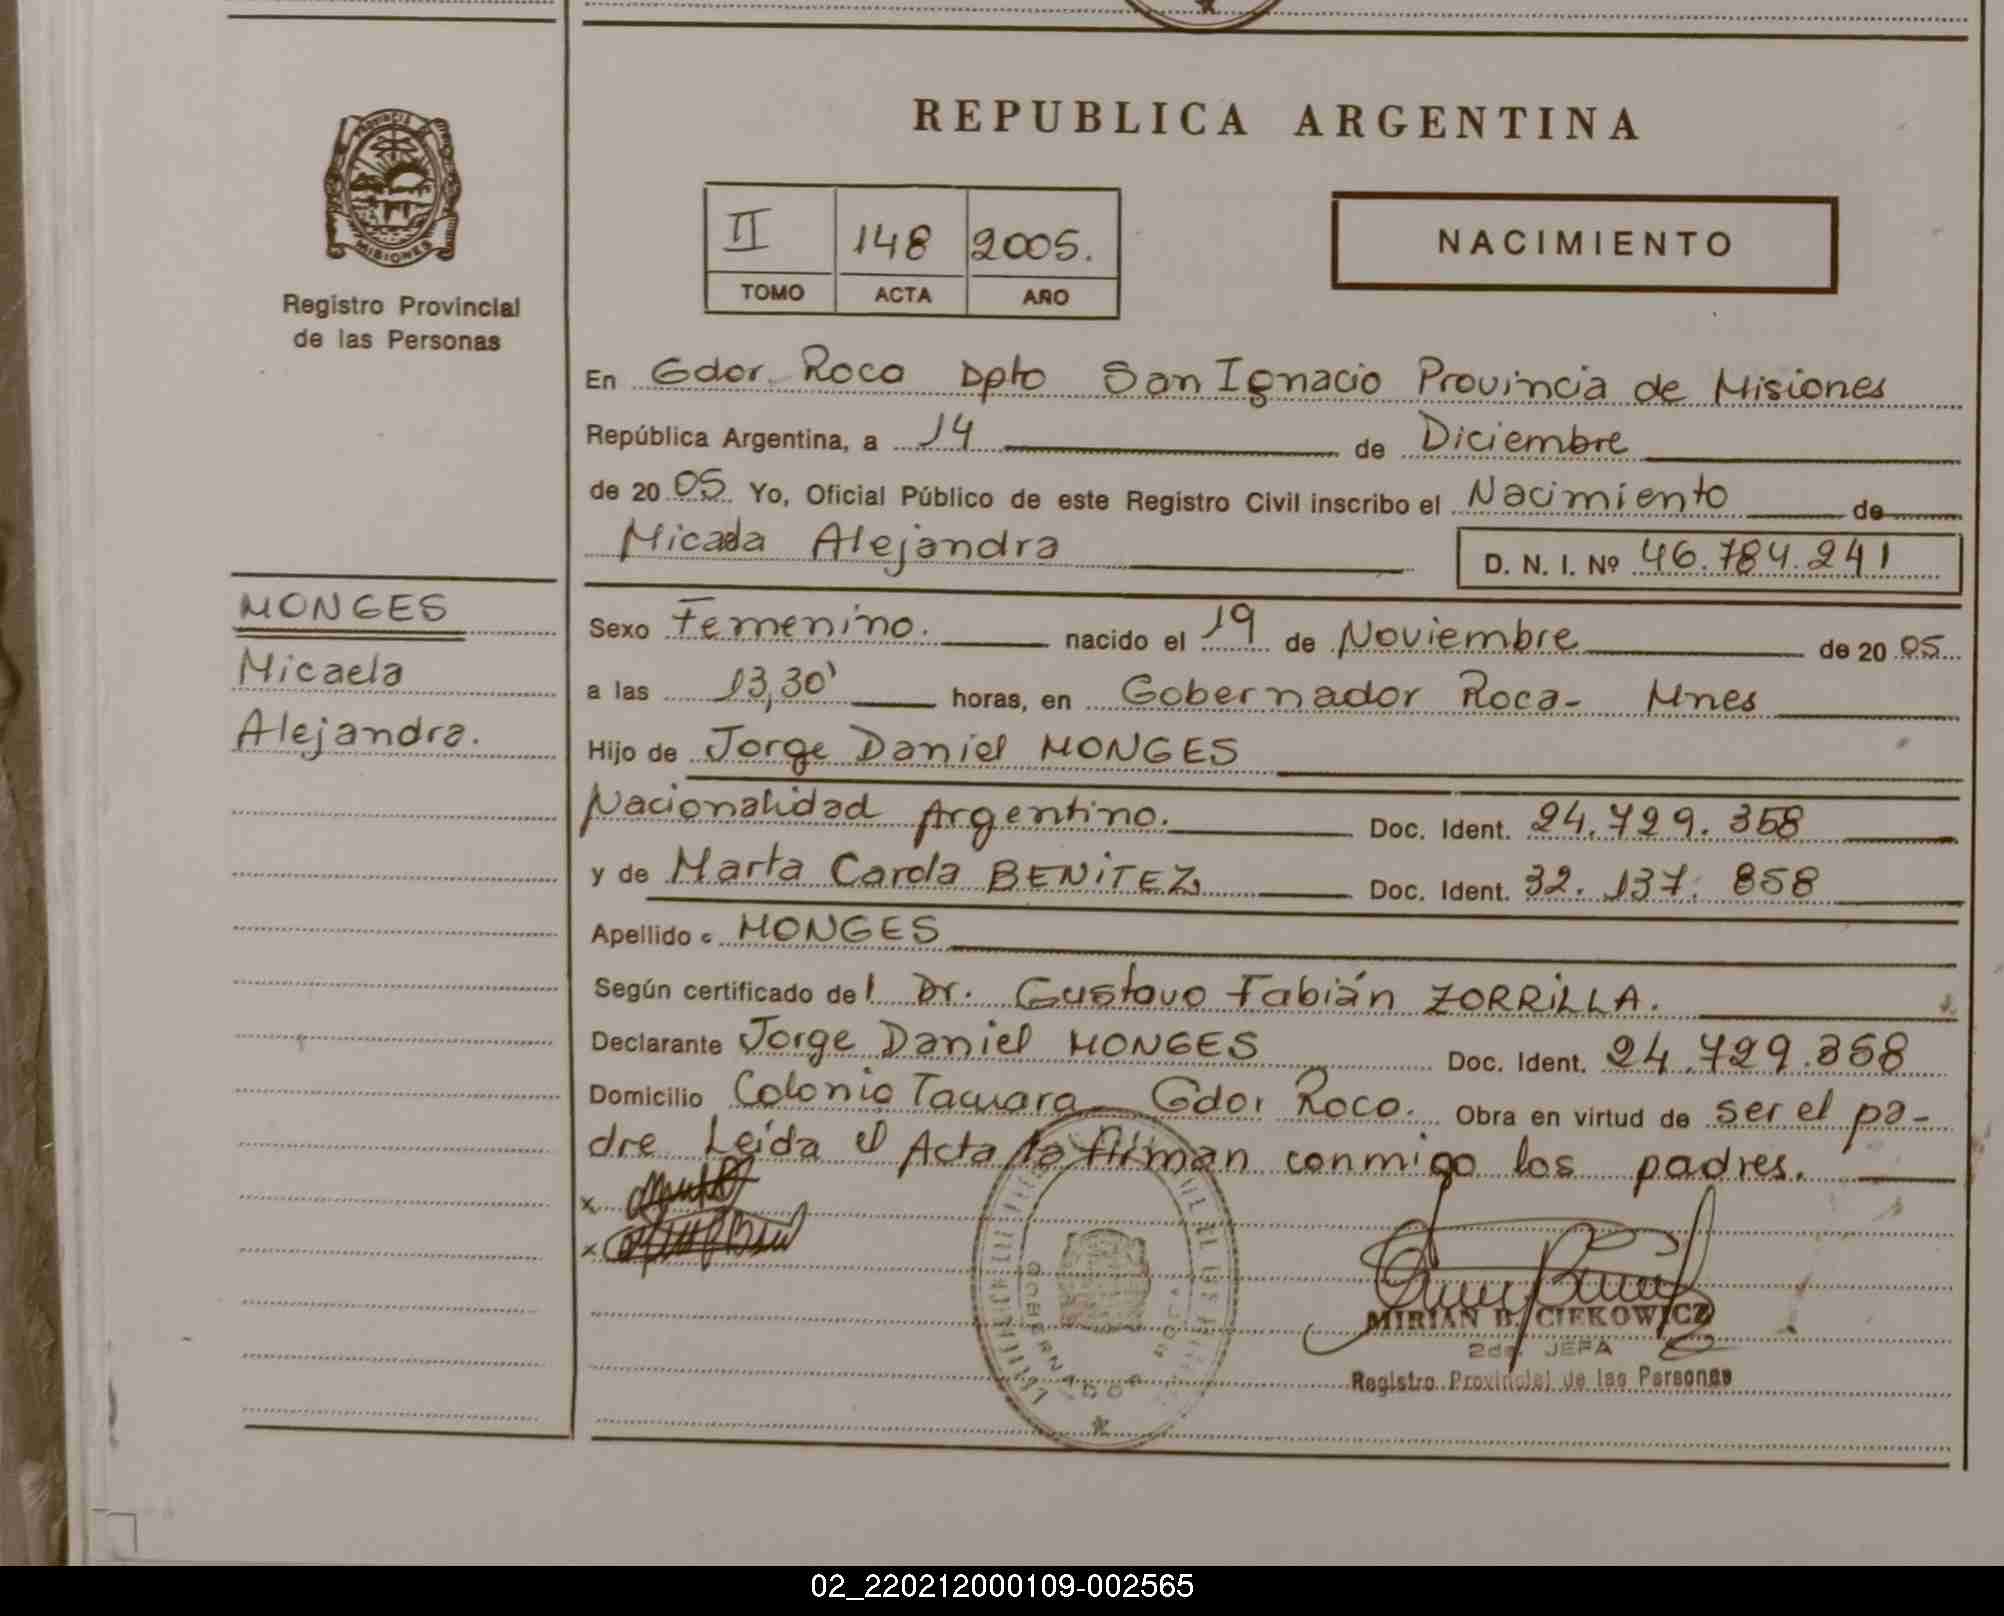 REPUBLICA ARGENTINA
PROVINCIA DE
MISIONES
Registro Provincial
de las Personas
II 148 2005.
TOMO ACTA AÑO
NACIMIENTO
En Gdor. Roca Dpto San Ignacio Provincia de Misiones
República Argentina, a 14 de Diciembre
de 20 05 Yo, Oficial Público de este Registro Civil inscribo el Nacimiento de
Micaela Alejandra D. N. I. Nº 46.784.241
MONGES
Micaela
Alejandra.
Sexo Femenino. nacido el 19 de Noviembre de 20 05
a las 13,30' horas, en Gobernador Roca- Mnes
Hijo de Jorge Daniel MONGES
Nacionalidad Argentino. Doc. Ident. 24.729.358
y de Marta Carola BENITEZ Doc. Ident. 32.137.858
Apellido MONGES
Según certificado del Dr. Gustavo Fabián ZORRILLA.
Declarante Jorge Daniel MONGES Doc. Ident. 24.729.358
Domicilio Colonia Gdor Roca. Obra en virtud de ser el pa-
dre Leída el Acta la firman conmigo los padres.
x
x
GOBERNADOR ROCA
MIRIAN B. CIEKOWICZ
2da. JEFA
Registro Provincial de las Personas
02_220212000109-002565